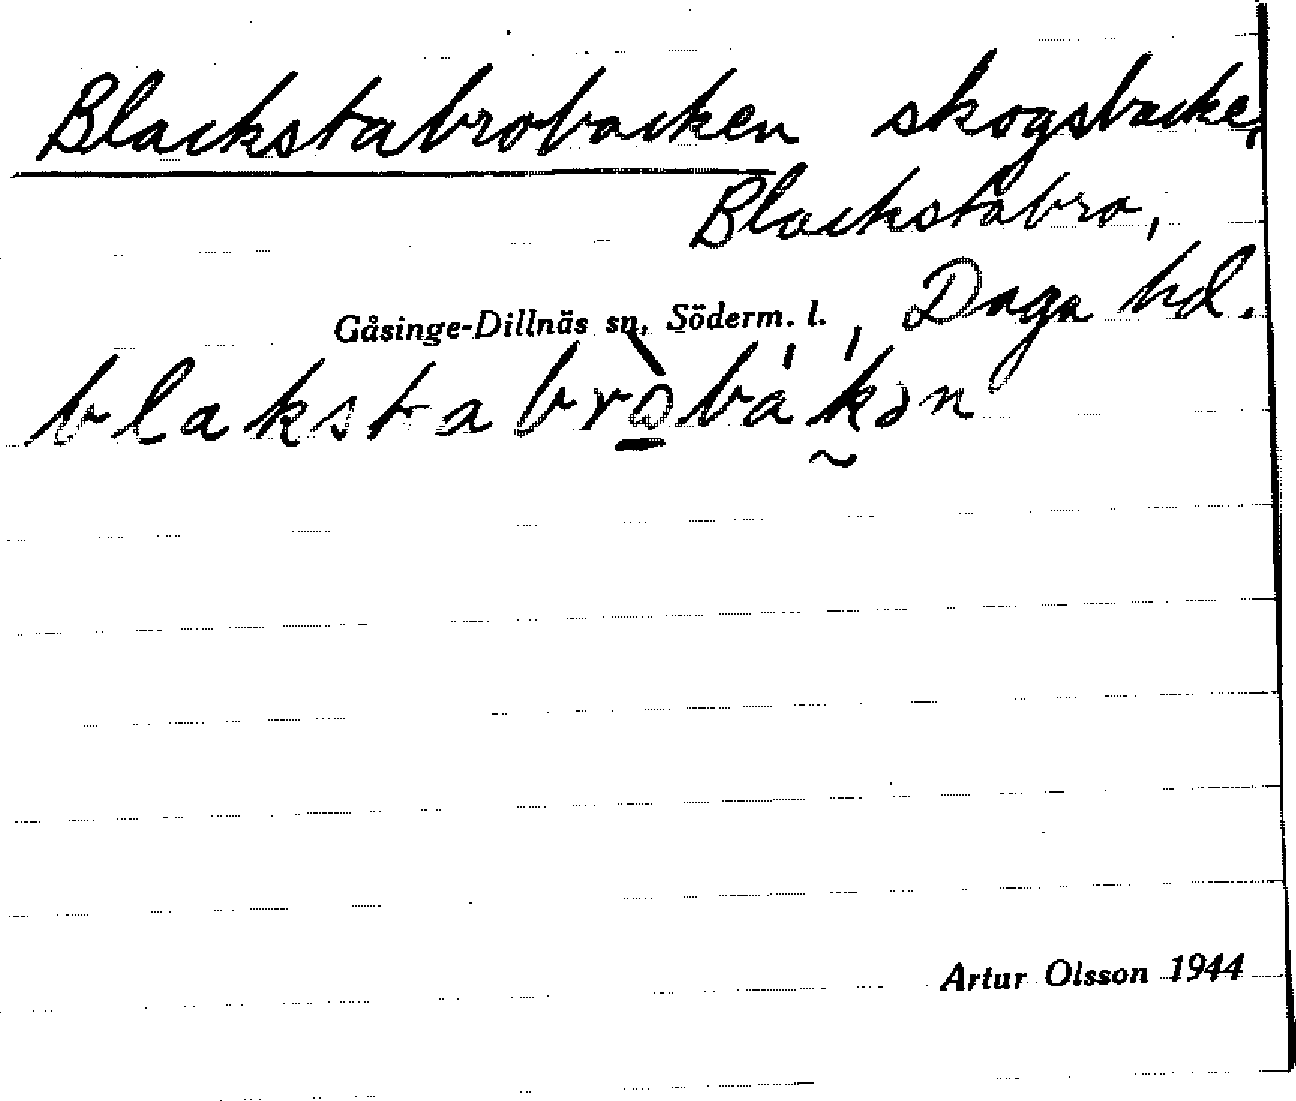 Blackstabrobacken skogsbacke,
Blackstabro,
Gåsinge-Dillnäs sn, Söderm. l., Daga hd.
blakstabrò̲bá́k̰ən
Artur Olsson 1944